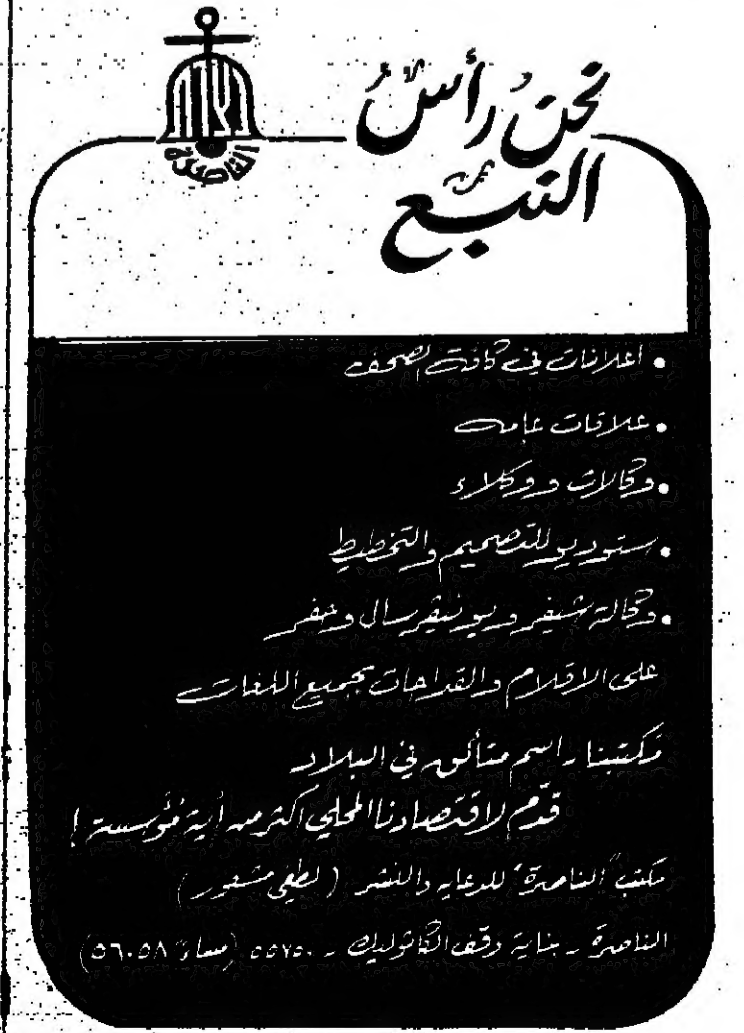 نحن رأسُ
النبع
الناصرة
• اعلانات في كافة الصحف
• علاقات عامه
• وكالات ووكلاء
• ستوديو للتصميم والتخطيط
• وكالة شيفر ويونيفرسال وحفر
على الاقلام والقداحات بجميع اللغات
مكتبنا - اسم متألق في البلاد
قدّم لاقتصادنا المحلي اكثر من أية مُؤسسة !
مكتب "الناصرة" للدعايه والنشر ( لطفي مشعور )
الناصرة - بناية وقف الكاثوليك - ٥٥٧٥٠ (مساءً ٥٦٠٥٨)